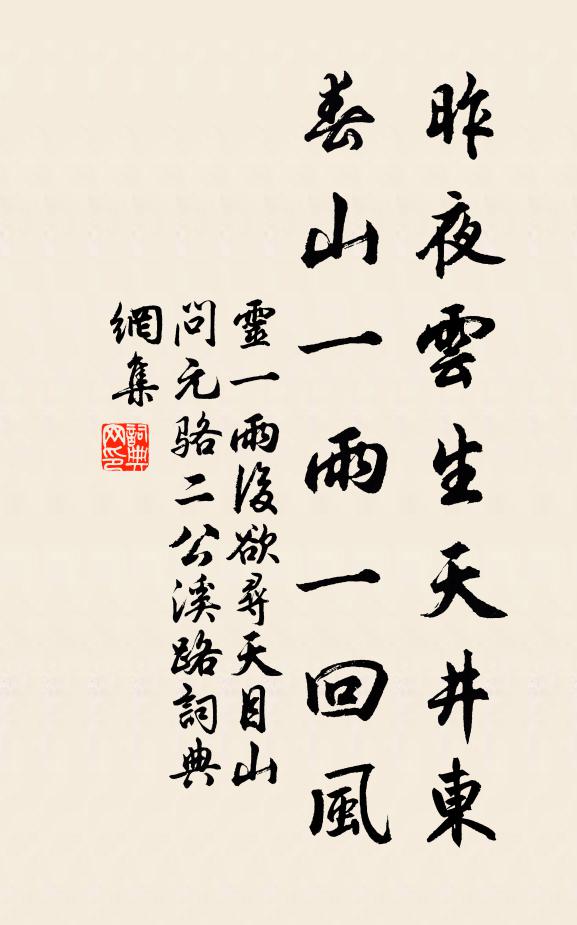 昨夜雲生天井東
春山一雨一回風
靈一雨後欲尋天目山
問元骆二公溪路詞典
網集
詞典
网印